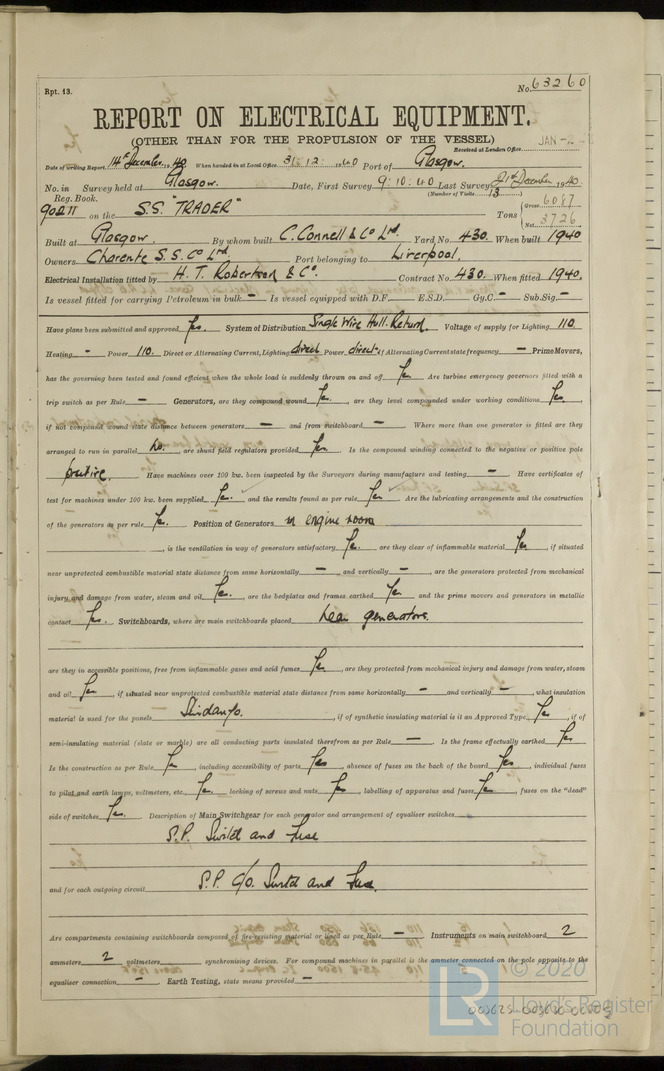 Rpt. 13.
No. 63260
REPORT ON ELECTRICAL EQUIPMENT.
(OTHER THAN FOR THE PROPULSION OF THE VESSEL)
Received at London Office JAN
Date of writing Report 14th December 1940 When handed in at Local Office 31.12.1940 Port of Glasgow.
No. in Survey held at Glasgow. Date, First Survey 9.10.40 Last Survey 21st December 1940
Reg. Book. (Number of Visits 13)
90211 on the S.S. "TRADER" Tons { Gross 6087
Net 3726
Built at Glasgow. By whom built C. Connell & Co Ltd. Yard No. 430. When built 1940
Owners Charente S.S. Co Ltd. Port belonging to Liverpool,
Electrical Installation fitted by H. T. Robertson & Co. Contract No. 430. When fitted 1940.
Is vessel fitted for carrying Petroleum in bulk – Is vessel equipped with D.F. E.S.D. – Gy.C. – Sub.Sig. –
Have plans been submitted and approved Yes. System of Distribution Single Wire Hull Return. Voltage of supply for Lighting 110
Heating – Power 110. Direct or Alternating Current, Lighting direct Power direct If Alternating Current state frequency – Prime Movers,
has the governing been tested and found efficient when the whole load is suddenly thrown on and off Yes Are turbine emergency governors fitted with a
trip switch as per Rule – Generators, are they compound wound Yes, are they level compounded under working conditions Yes,
if not compound wound state distance between generators – and from switchboard – Where more than one generator is fitted are they
arranged to run in parallel No. are shunt field regulators provided Yes. Is the compound winding connected to the negative or positive pole
positive. Have machines over 100 kw. been inspected by the Surveyors during manufacture and testing – Have certificates of
test for machines under 100 kw. been supplied Yes. and the results found as per rule Yes Are the lubricating arrangements and the construction
of the generators as per rule Yes. Position of Generators in engine room
, is the ventilation in way of generators satisfactory Yes. are they clear of inflammable material Yes, if situated
near unprotected combustible material state distance from same horizontally – and vertically –, are the generators protected from mechanical
injury and damage from water, steam and oil Yes., are the bedplates and frames earthed Yes and the prime movers and generators in metallic
contact Yes. Switchboards, where are main switchboards placed Near generators.
are they in accessible positions, free from inflammable gases and acid fumes Yes, are they protected from mechanical injury and damage from water, steam
and oil Yes, if situated near unprotected combustible material state distance from same horizontally – and vertically –, what insulation
material is used for the panels Sindanyo., if of synthetic insulating material is it an Approved Type Yes, if of
semi-insulating material (slate or marble) are all conducting parts insulated therefrom as per Rule –. Is the frame effectually earthed Yes
Is the construction as per Rule Yes, including accessibility of parts Yes absence of fuses on the back of the board Yes, individual fuses
to pilot and earth lamps, voltmeters, etc. Yes, locking of screws and nuts Yes, labelling of apparatus and fuses Yes, fuses on the "dead"
side of switches Yes. Description of Main Switchgear for each generator and arrangement of equaliser switches
S.P. Switch and Fuse
and for each outgoing circuit S.P. C/O. Switch and Fuse.
Are compartments containing switchboards composed of fire-resisting material or lined as per Rule – Instruments on main switchboard 2
ammeters 2 voltmeters synchronising devices. For compound machines in parallel is the ammeter connected on the pole opposite to the
equaliser connection – Earth Testing, state means provided –
LR
© 2020
Lloyd's Register
Foundation